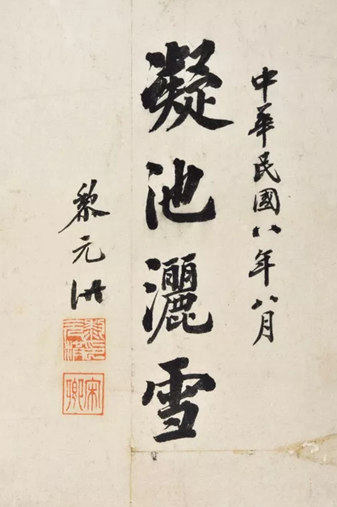 中華民國八年八月
凝池灑雪
黎元洪
黎印元洪
宋卿